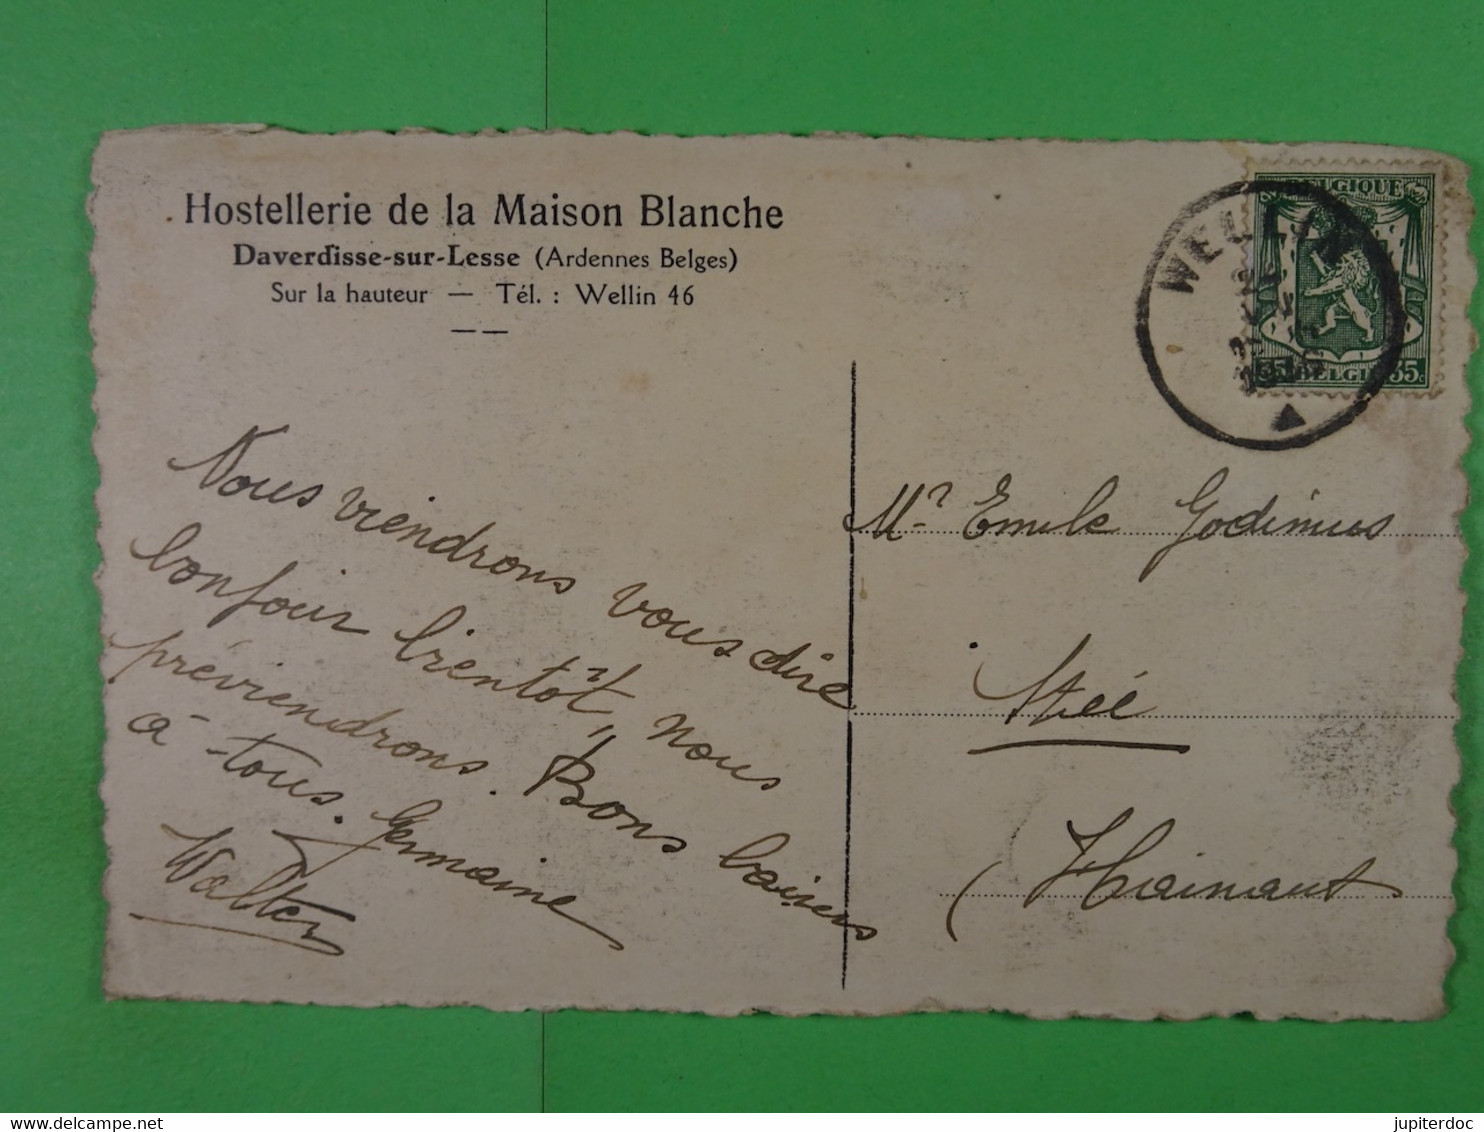 Hostellerie de la Maison Blanche
Daverdisse-sur-Lesse (Ardennes Belges)
Sur la hauteur — Tél. : Wellin 46
BELGIQUE
WELLIN
35c BELGIË 35c
Nous viendrons vous dire
bonjour bientôt, nous
préviendrons. Bons baisers
à tous. Germaine
Walter
Mr Emile Godimus
(Hainaut
jupiterdoc